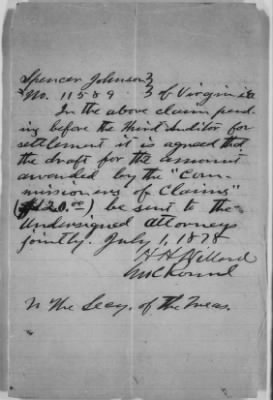 Spencer Johnson }
No. 11589 } of Virginia
In the above claim pend-
ing before the Third Auditor for
settlement it is agreed that
the draft for the amount
awarded by the "Com-
missioners of Claims"
($120.00) be sent to the
Undersigned attorneys
jointly. July 1, 1878
H H Willard
To the Secy. of the Treas.